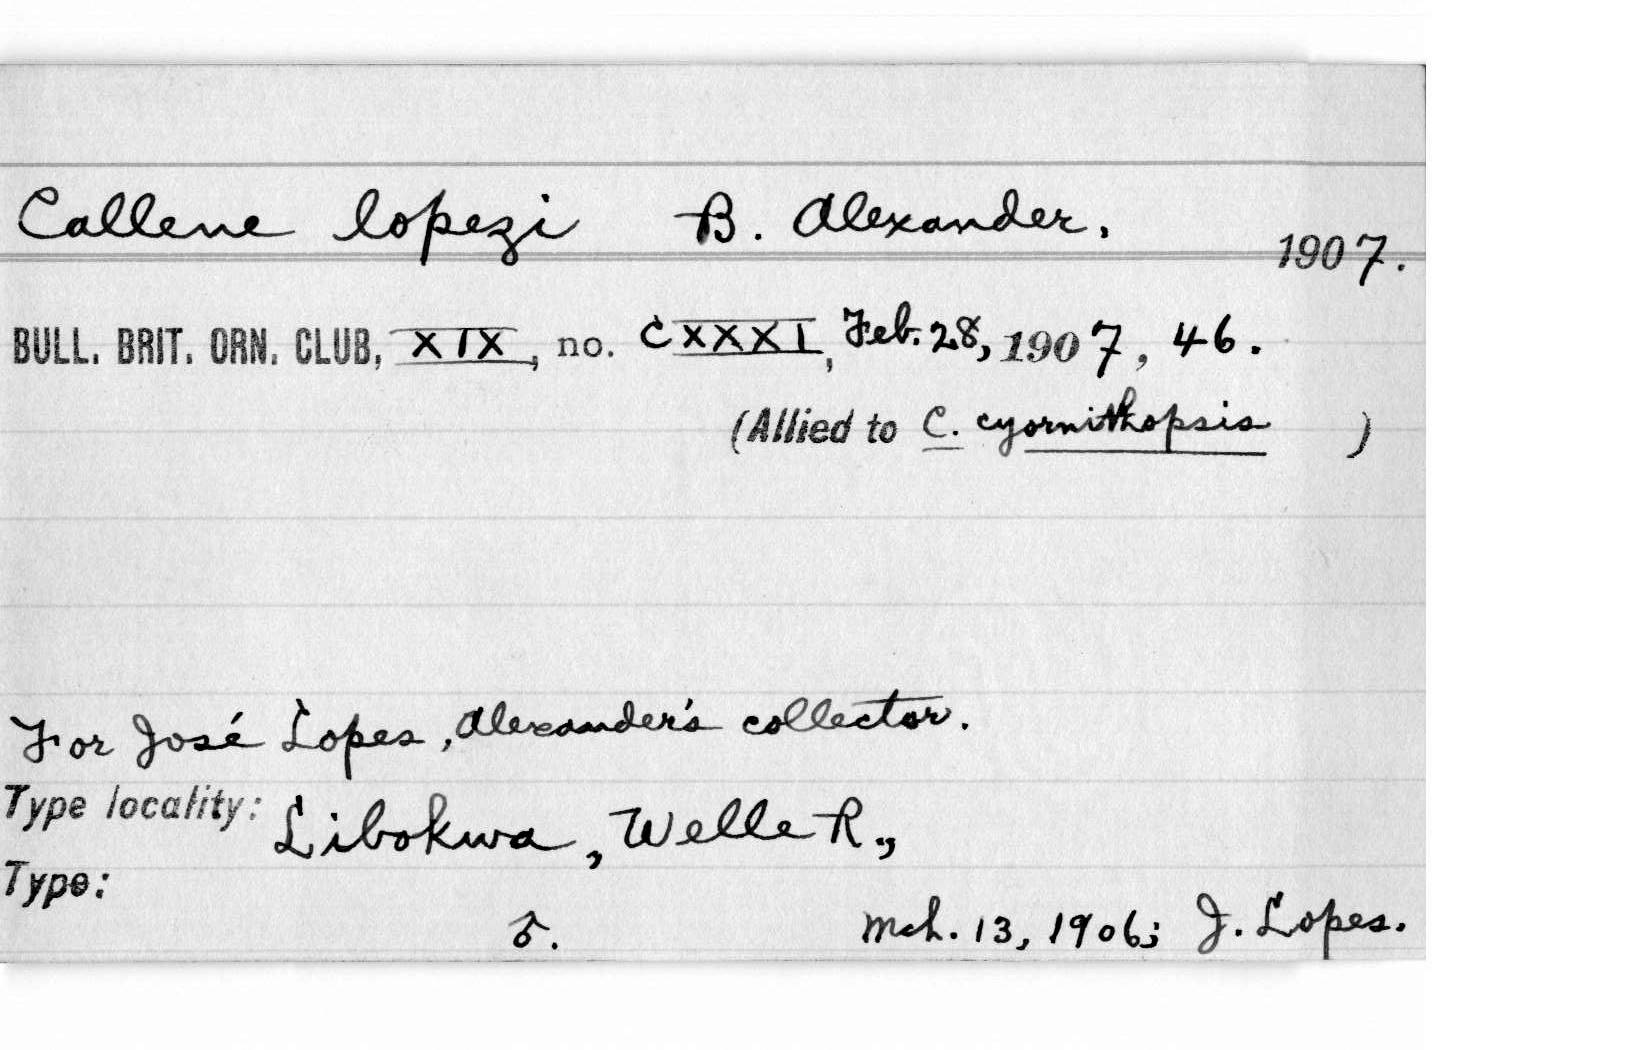 Callene lopezi B. Alexander. 1907.
BULL. BRIT. ORN. CLUB, XIX, no. CXXXI, Feb. 28, 1907, 46.
(Allied to C. cyornithopsis )
For José Lopes, Alexander's collector.
Type locality: Libokwa, Welle R.,
Type:
♂. Mch. 13, 1906; J. Lopes.